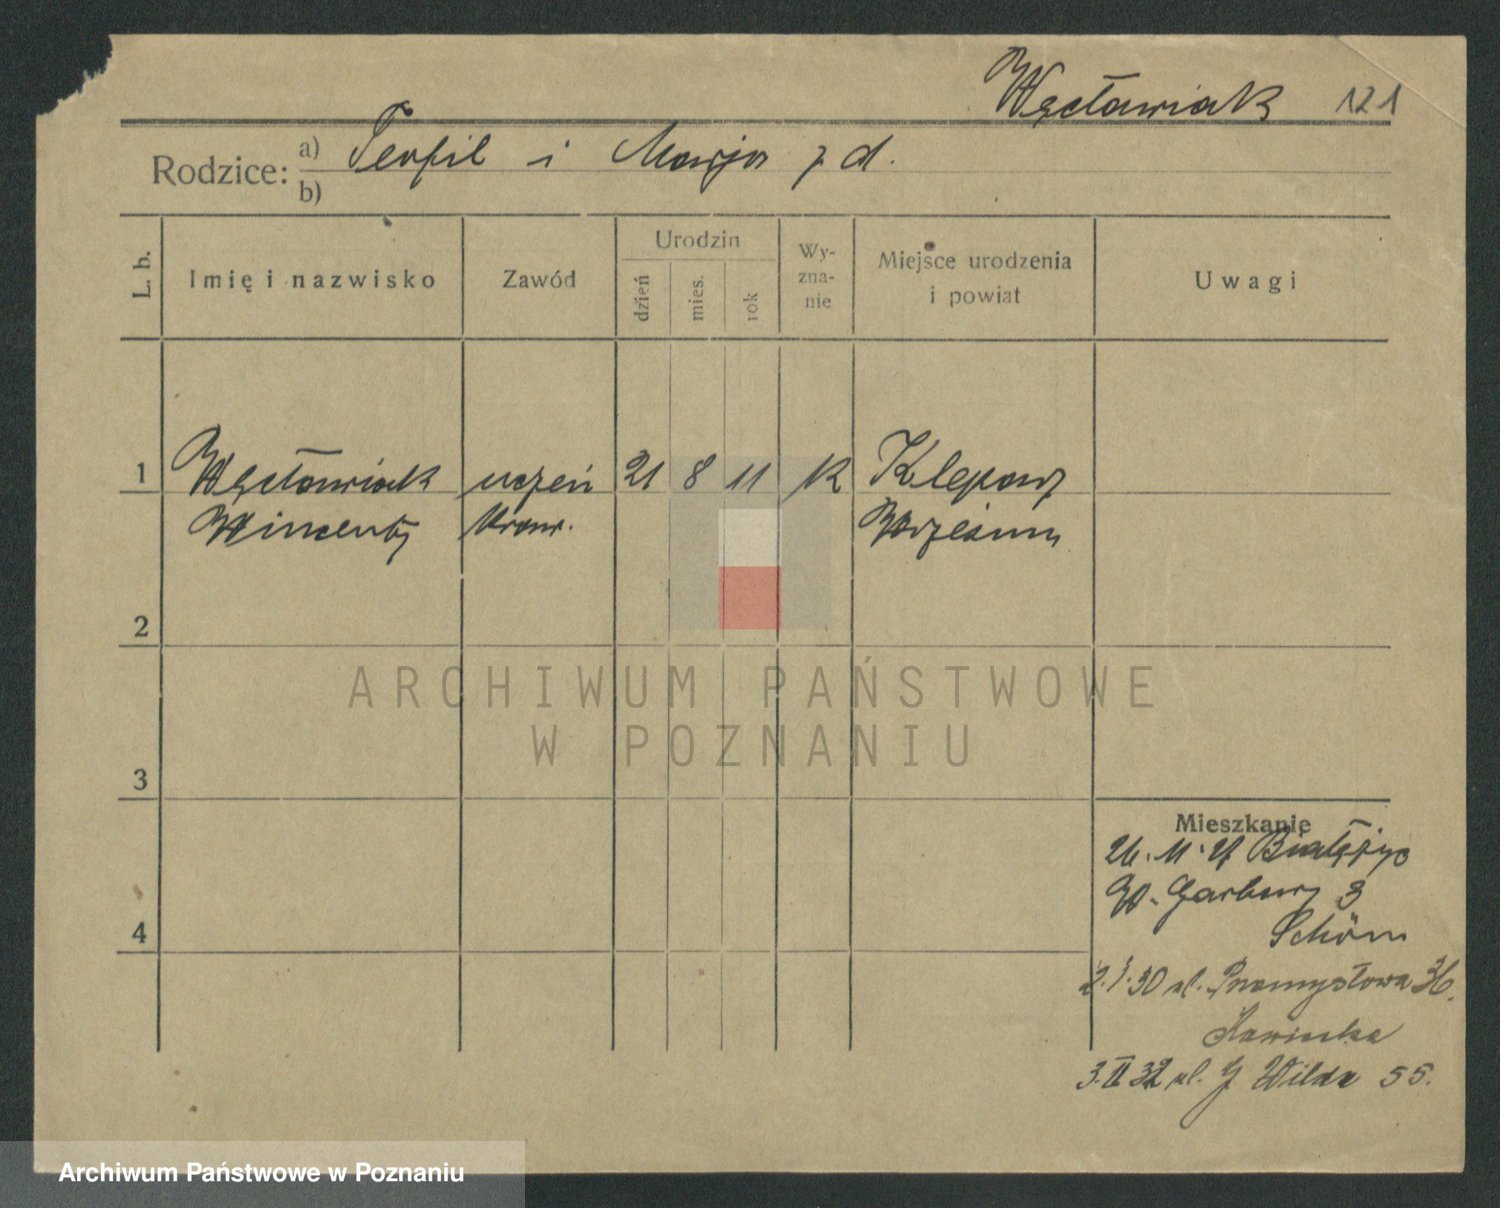 Węcławiak 121
Rodzice: a) Teofil i Marja z d.
b)
L. b.
Imię i nazwisko
Zawód
Urodzin
dzień
mies.
rok
Wy-
zna-
nie
Miejsce urodzenia
i powiat
Uwagi
1 Węcławiak uczeń 21 8 11 k Klepary
Wincenty kraw. Września
2
ARCHIWUM PAŃSTWOWE
W POZNANIU
3
4
Mieszkanie
26. 11. 27 Białężyc
W. Garbary 3
Schön
2.I.30 ul. Przemysłowa 36.
Kawiecka
3.II 32 ul. G Wilda 55.
Archiwum Państwowe w Poznaniu